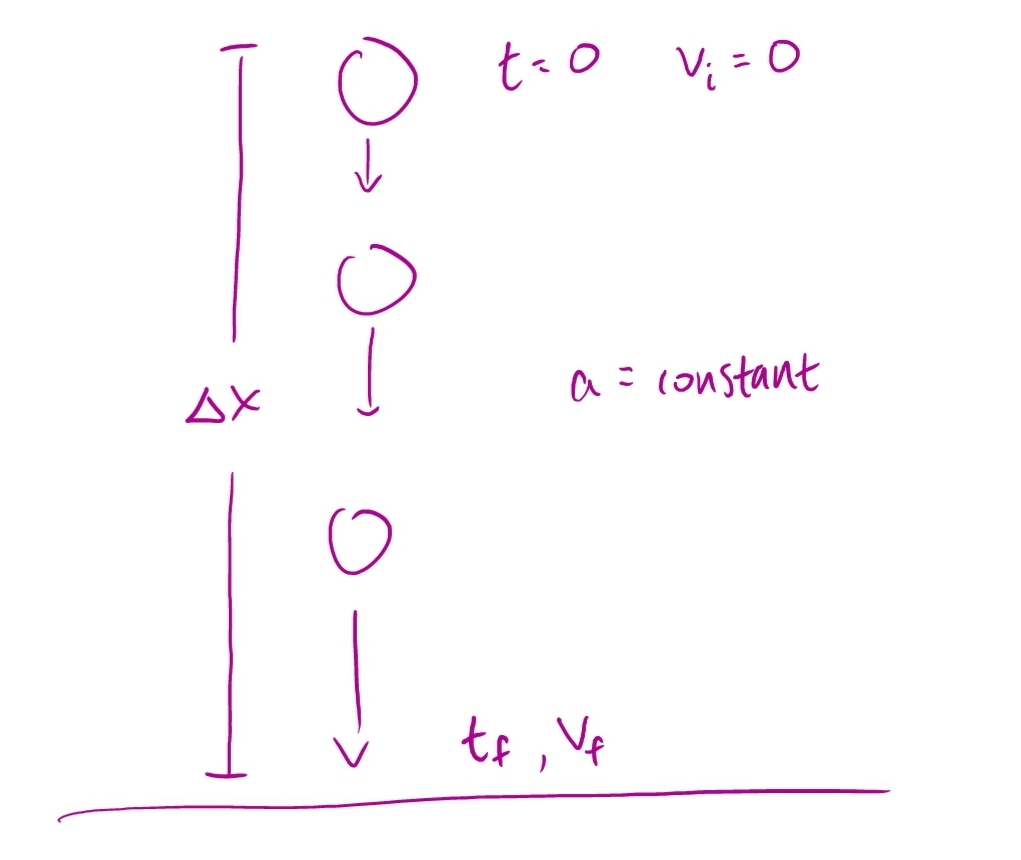 t = 0 v_i = 0
Δx
a = constant
t_f , v_f